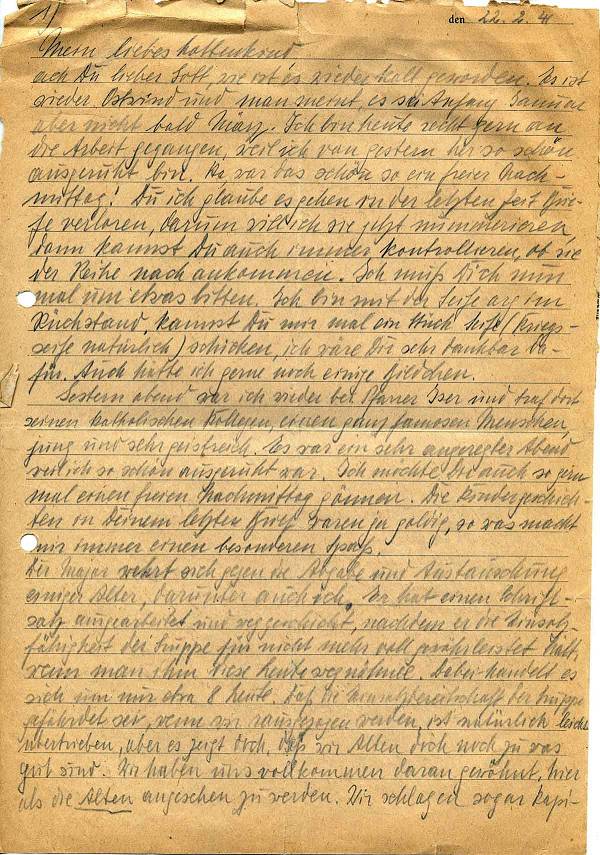 1)
den 22. 2. 41
Mein liebes
ach Du lieber Gott, wie ist es wieder kalt geworden. Es ist
wieder Ostwind und man meint, es sei Anfang Januar
aber nicht bald März. Ich bin heute recht gern an
die Arbeit gegangen, weil ich von gestern her so schön
ausgeruht bin. war das schön so ein freier Nach-
mittag! Du ich glaube es gehen in der letzten Zeit Brie-
fe verloren, darum will ich sie jetzt nummerieren,
dann kannst Du auch immer kontrollieren, ob sie
der Reihe nach ankommen. Ich muß Dich nun
mal um etwas bitten. Ich bin mit der Seife arg im
Rückstand, kannst Du mir mal ein Stück (Kriegs-
seife natürlich) schicken, ich wäre Dir sehr dankbar da-
für. Auch hätte ich gerne noch einige Bildchen.
Gestern abend war ich wieder bei Pfarrer und traf dort
seinen katholischen Kollegen, einen ganz famosen Menschen,
jung und sehr geistreich. Es war ein sehr angeregter Abend
weil ich so schön ausgeruht war. Ich möchte Dir auch so gern
mal einen freien Nachmittag gönnen. Die Kindergeschich-
ten in Deinem letzten Brief waren ja goldig, so was macht
mir immer einen besonderen Spaß.
Der Major wehrt sich gegen die Abgabe und Austauschung
einiger Alter, darunter auch ich. Er hat einen Schrift-
satz ausgearbeitet und weggeschickt, nachdem er die Einsatz-
fähigkeit der Truppe für nicht mehr voll gewährleistet hält,
wenn man ihm diese Leute wegnähme. Dabei handelt es
sich um nur etwa 8 Leute. Daß die Einsatzbereitschaft der Truppe
gefährdet sei, wenn wir rausgezogen werden, ist natürlich leicht
übertrieben, aber es zeigt doch, daß wir Alten doch noch zu was
gut sind. Wir haben uns vollkommen daran gewöhnt, hier
als die Alten angesehen zu werden. Wir schlagen sogar Kapi-